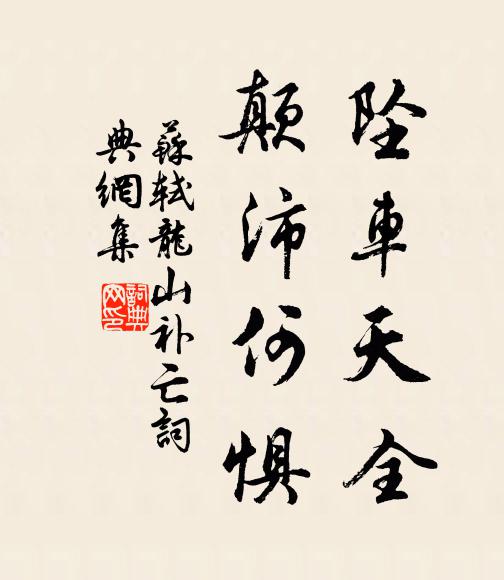 坠車天全
顛沛何惧
蘇軾龍山补亡詞
典網集
詞典網印